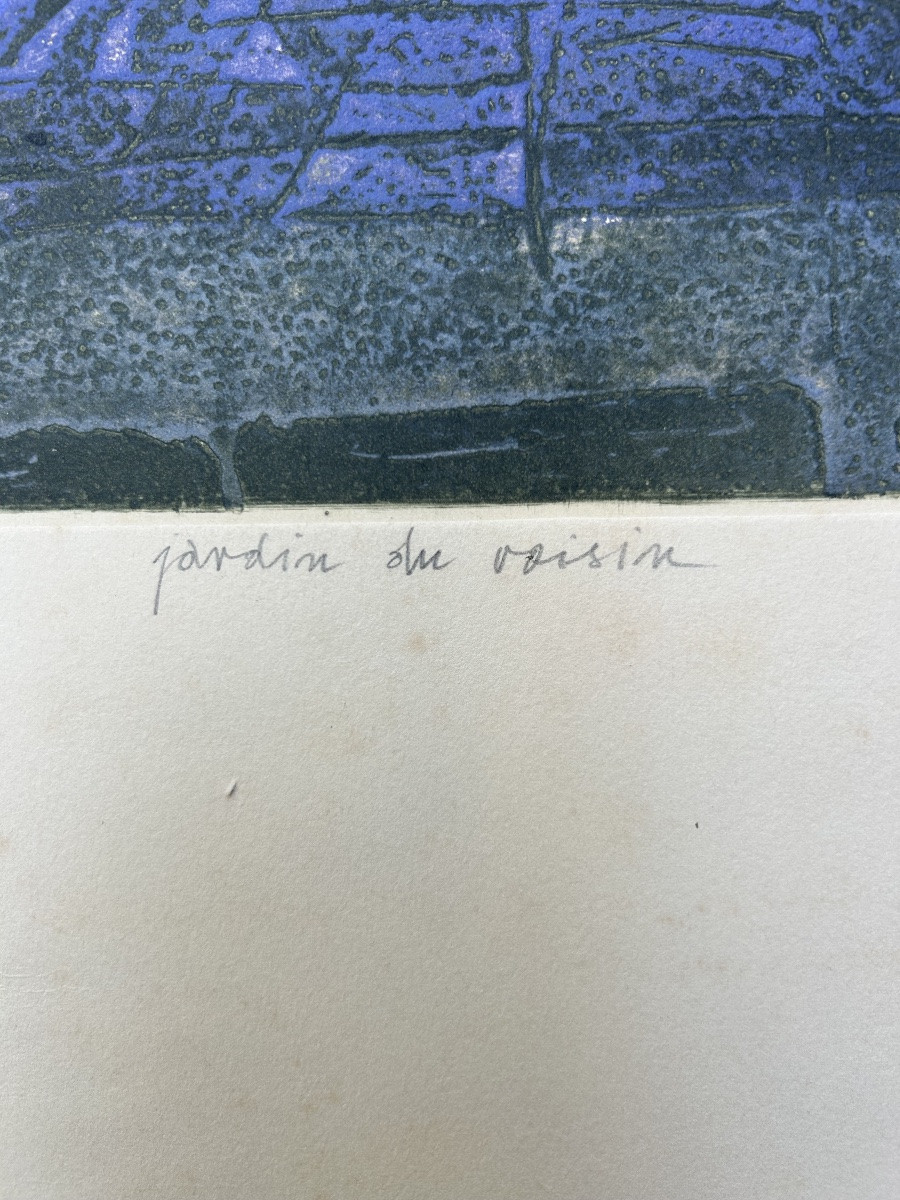 jardin du voisin